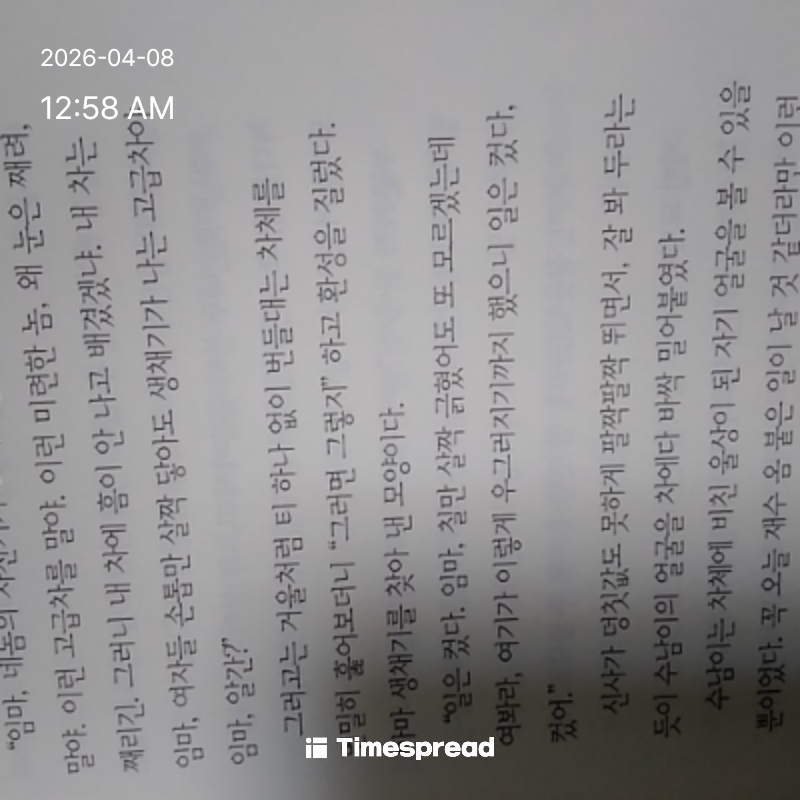 2026-04-08
12:58 AM
"임마, 네놈의 자전거가
말야. 이런 고급차를 말야. 이런 미련한 놈, 왜 눈은 째려,
째리긴. 그러니 내 차에 흠이 안 나고 배겼겠냐. 내 차는
임마, 여자들 손톱만 살짝 닿아도 생채기가 나는 고급차야
임마, 알간?"
그러고는 거울처럼 티 하나 없이 번들대는 차체를
밀히 훑어보더니 "그러면 그렇지" 하고 환성을 질렀다.
생채기를 찾아 낸 모양이다.
"일은 컸다. 임마, 칠만 살짝 긁혔어도 또 모르겠는데
여봐라, 여기가 이렇게 우그러지기까지 했으니 일은 컸다,
컸어."
신사가 덩칫값도 못하게 팔짝팔짝 뛰면서, 잘 봐 두라는
듯이 수남이의 얼굴을 차에다 바싹 밀어붙였다.
수남이는 차체에 비친 울상이 된 자기 얼굴을 볼 수 있을
뿐이었다. 꼭 오늘 재수 옴 붙은 일이 날 것 같더라만 이런
Timespread